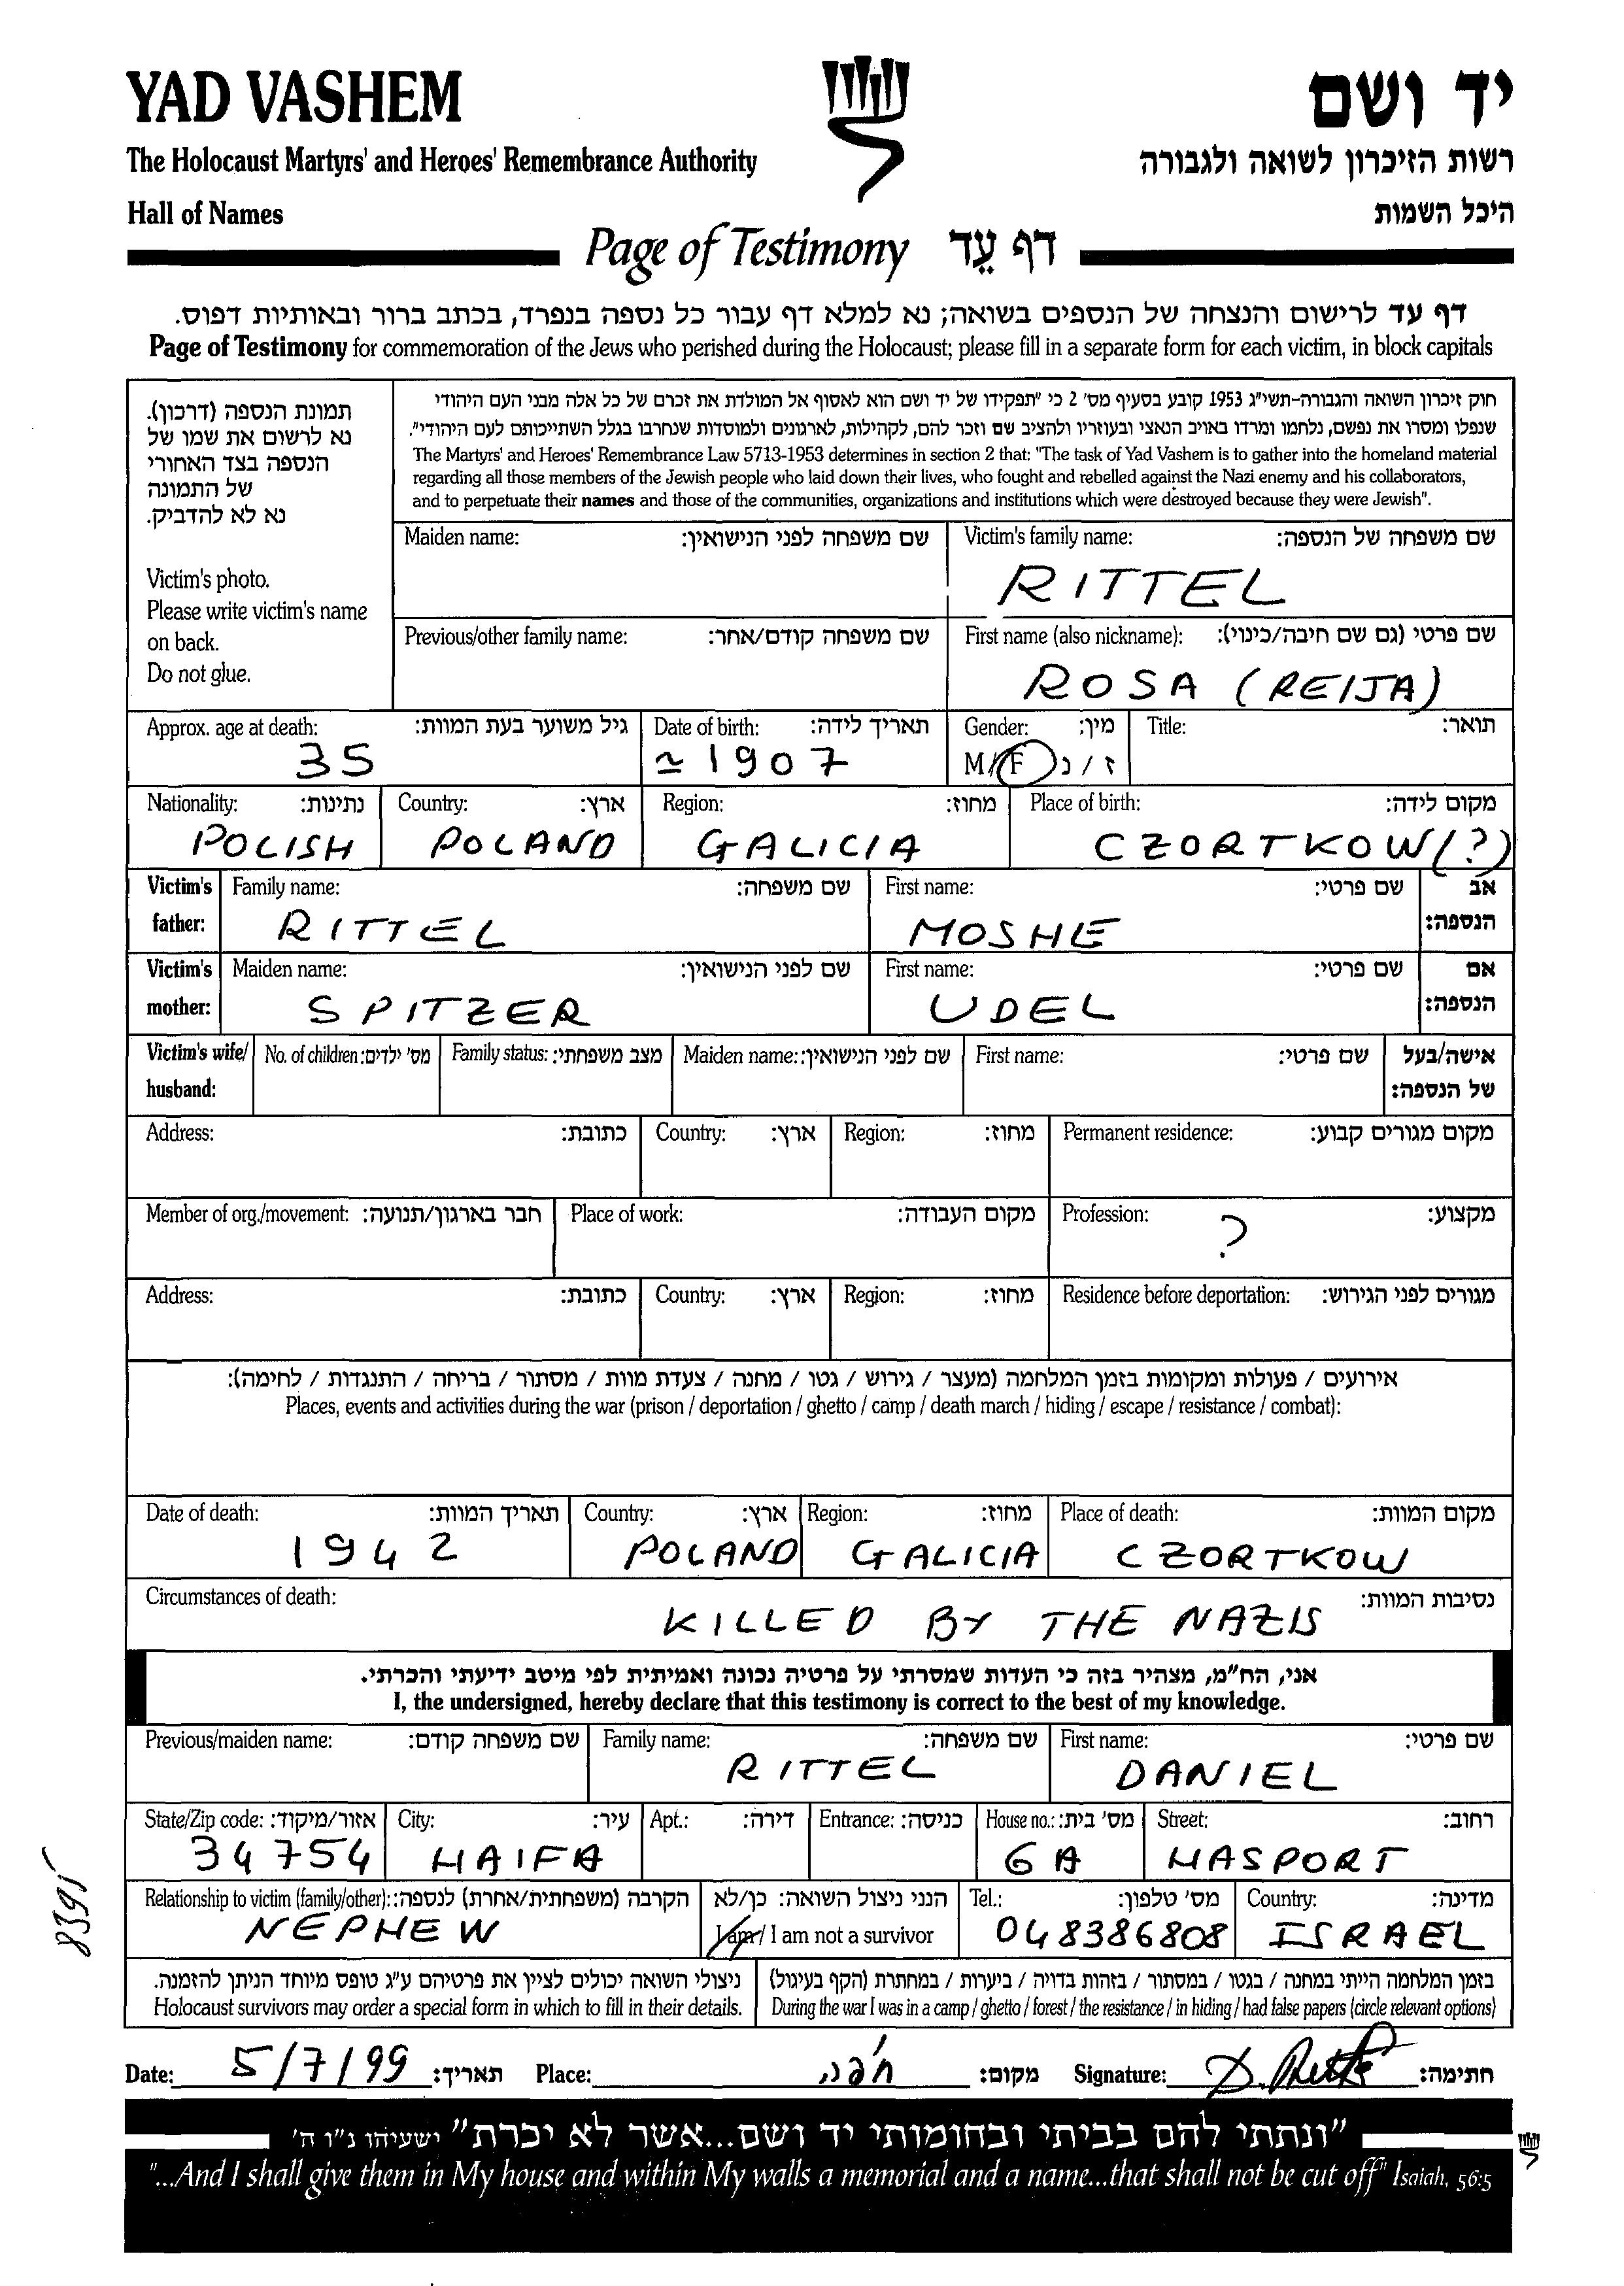 YAD VASHEM יד ושם
The Holocaust Martyrs' and Heroes' Remembrance Authority רשות הזיכרון לשואה ולגבורה
Hall of Names היכל השמות
Page of Testimony דף עֵד
דף עד לרישום והנצחה של הנספים בשואה; נא למלא דף עבור כל נספה בנפרד, בכתב ברור ובאותיות דפוס.
Page of Testimony for commemoration of the Jews who perished during the Holocaust; please fill in a separate form for each victim, in block capitals
תמונת הנספה (דרכון).
נא לרשום את שמו של
הנספה בצד האחורי
של התמונה
נא לא להדביק.
Victim's photo.
Please write victim's name
on back.
Do not glue.
חוק זיכרון השואה והגבורה-תשי"ג 1953 קובע בסעיף מס' 2 כי "תפקידו של יד ושם הוא לאסוף אל המולדת את זכרם של כל אלה מבני העם היהודי
שנפלו ומסרו את נפשם, נלחמו ומרדו באויב הנאצי ובעוזריו ולהציב שם וזכר להם, לקהילות, לארגונים ולמוסדות שנחרבו בגלל השתייכותם לעם היהודי".
The Martyrs' and Heroes' Remembrance Law 5713-1953 determines in section 2 that: "The task of Yad Vashem is to gather into the homeland material
regarding all those members of the Jewish people who laid down their lives, who fought and rebelled against the Nazi enemy and his collaborators,
and to perpetuate their names and those of the communities, organizations and institutions which were destroyed because they were Jewish".
Maiden name: שם משפחה לפני הנישואין: Victim's family name: שם משפחה של הנספה:
RITTEL
Previous/other family name: שם משפחה קודם/אחר: First name (also nickname): שם פרטי (גם שם חיבה/כינוי):
ROSA (REIJA)
Approx. age at death: גיל משוער בעת המוות: Date of birth: תאריך לידה: Gender: מין: Title: תואר:
35 ≃ 1907 M/F ז/נ
Nationality: נתינות: Country: ארץ: Region: מחוז: Place of birth: מקום לידה:
POLISH POLAND GALICIA CZORTKOW (?)
Victim's father: Family name: שם משפחה: First name: שם פרטי: אב הנספה:
RITTEL MOSHE
Victim's mother: Maiden name: שם לפני הנישואין: First name: שם פרטי: אם הנספה:
SPITZER UDEL
Victim's wife/ husband: No. of children: מס' ילדים: Family status: מצב משפחתי: Maiden name: שם לפני הנישואין: First name: שם פרטי: אישה/בעל של הנספה:
Address: כתובת: Country: ארץ: Region: מחוז: Permanent residence: מקום מגורים קבוע:
Member of org./movement: חבר בארגון/תנועה: Place of work: מקום העבודה: Profession: מקצוע:
?
Address: כתובת: Country: ארץ: Region: מחוז: Residence before deportation: מגורים לפני הגירוש:
אירועים / פעולות ומקומות בזמן המלחמה (מעצר / גירוש / גטו / מחנה / צעדת מוות / מסתור / בריחה / התנגדות / לחימה):
Places, events and activities during the war (prison / deportation / ghetto / camp / death march / hiding / escape / resistance / combat):
Date of death: תאריך המוות: Country: ארץ: Region: מחוז: Place of death: מקום המוות:
1942 POLAND GALICIA CZORTKOW
Circumstances of death: נסיבות המוות:
KILLED BY THE NAZIS
אני, הח"מ, מצהיר בזה כי העדות שמסרתי על פרטיה נכונה ואמיתית לפי מיטב ידיעתי והכרתי.
I, the undersigned, hereby declare that this testimony is correct to the best of my knowledge.
Previous/maiden name: שם משפחה קודם: Family name: שם משפחה: First name: שם פרטי:
RITTEL DANIEL
State/Zip code: אזור/מיקוד: City: עיר: Apt.: דירה: Entrance: כניסה: House no.: מס' בית: Street: רחוב:
34754 HAIFA 6A HASPORT
Relationship to victim (family/other): הקרבה (משפחתית/אחרת) לנספה: הנני ניצול השואה: כן/לא Tel.: מס' טלפון: Country: מדינה:
NEPHEW I am / I am not a survivor 048386808 ISRAEL
ניצולי השואה יכולים לציין את פרטיהם ע"ג טופס מיוחד הניתן להזמנה. בזמן המלחמה הייתי במחנה / בגטו / במסתור / בזהות בדויה / ביערות / במחתרת (הקף בעיגול)
Holocaust survivors may order a special form in which to fill in their details. During the war I was in a camp / ghetto / forest / the resistance / in hiding / had false papers (circle relevant options)
Date: 5/7/99 תאריך: Place: חיפה מקום: Signature: D. Rittel חתימה:
"ונתתי להם בביתי ובחומותי יד ושם...אשר לא יכרת" ישעיהו נ"ו ה'
"...And I shall give them in My house and within My walls a memorial and a name...that shall not be cut off" Isaiah, 56:5
8395